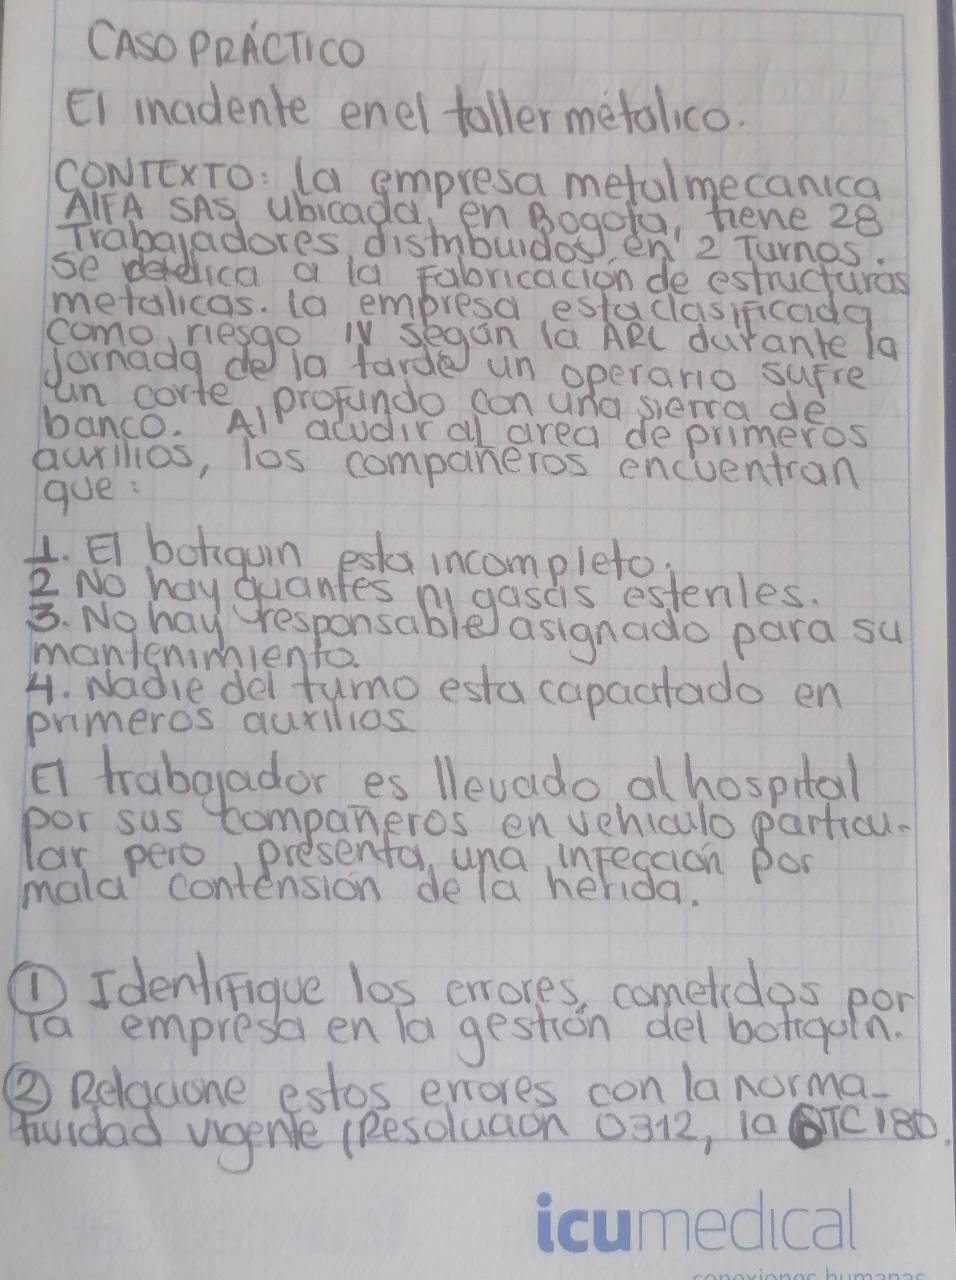 CASO PRÁCTICO
El incidente en el taller métalico.
CONTEXTO: La empresa metalmecanica
AlFA SAS ubicada, en Bogota, tiene 28
Trabajadores distribuidos en 2 Turnos.
se dedica a la Fabricación de estructuras
metalicas. La empresa esta clasificada
como riesgo IV según la ARL durante la
jornada de la tarde un operario sufre
un corte profundo con una sierra de
banco. Al acudir al area de primeros
auxilios, los compañeros encuentran
que:
1. El botiquin esta incompleto.
2 No hay guantes ni gasas esteriles.
3. No hay responsable asignado para su
mantenimiento.
4. Nadie del turno esta capacitado en
primeros auxilios
El trabajador es llevado al hospital
por sus compañeros en vehiculo particu-
lar pero, presenta, una infección por
mala contensión de la herida.
① Identifique los errores, cometidos por
la empresa en la gestión del botiquin.
② Relacione estos errores con la norma-
tividad vigente (Resolución 0312, la GTC 180.
icumedical
conexiones humanas